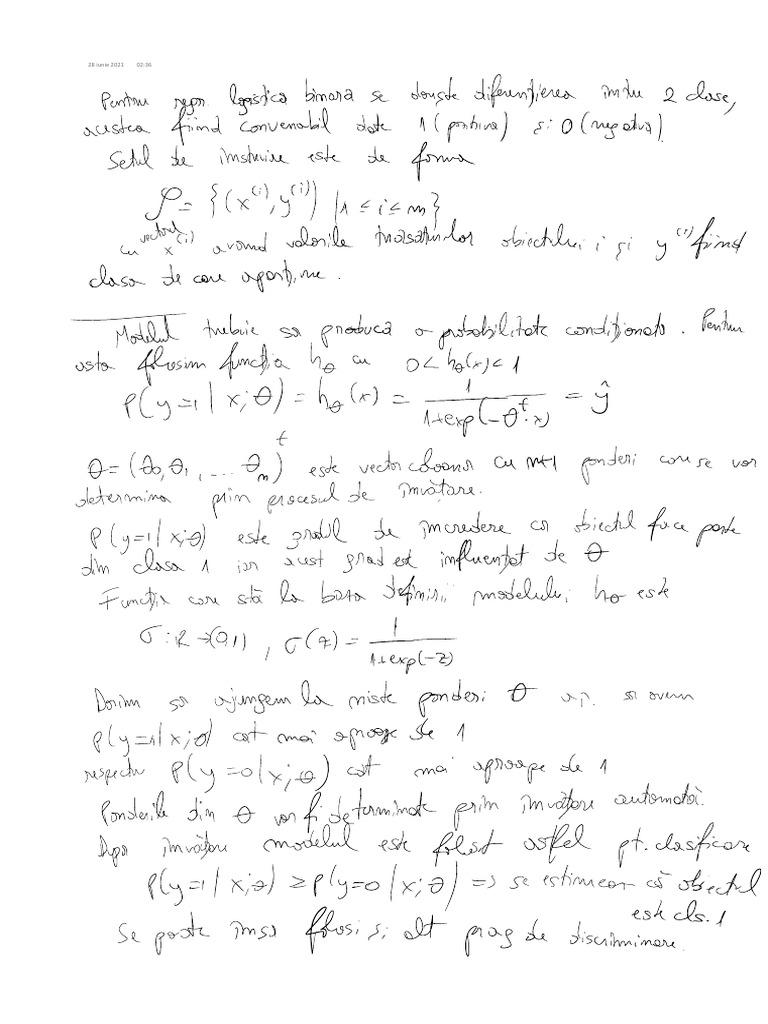 28 iunie 2021 02:36
Pentru regr. logistica binara se dorește diferențierea intre 2 clase,
acestea fiind convenabil date 1 (pozitiva) și 0 (negativa)
Setul de instruire este de forma
𝒮 = {(x^(i), y^(i)) | 1 ≤ i ≤ m}
cu vectorul x^(i) avand valorile trasaturilor obiectului i și y^(i) fiind
clasa de care aparține.
Modelul trebuie sa produca o probabilitate condiționata. Pentru
asta folosim funcția h_θ cu 0 < h_θ(x) < 1
P(y=1 | x; θ) = h_θ(x) = 1 / (1+exp(-θ^t · x)) = ŷ
θ = (θ_0, θ_1, ... θ_n)^t este vector coloana cu n+1 ponderi care se vor
determina prin procesul de învățare.
P(y=1 | x; θ) este gradul de incredere ca obiectul face parte
din clasa 1 iar acest grad este influențat de θ
Funcția care stă la baza definirii modelului h_θ este
σ : R → (0,1), σ(z) = 1 / (1+exp(-z))
Dorim sa ajungem la niste ponderi θ a.i. sa avem
P(y=1 | x; θ) cat mai aproape de 1
respectiv P(y=0 | x; θ) cat mai aproape de 1
Ponderile din θ vor fi determinate prin învățare automată.
Dupa învățare modelul este folosit astfel pt. clasificare
P(y=1 | x; θ) ≥ P(y=0 | x; θ) => se estimeaza că obiectul
este cls. 1
Se poate insa folosi si alt prag de discriminare.